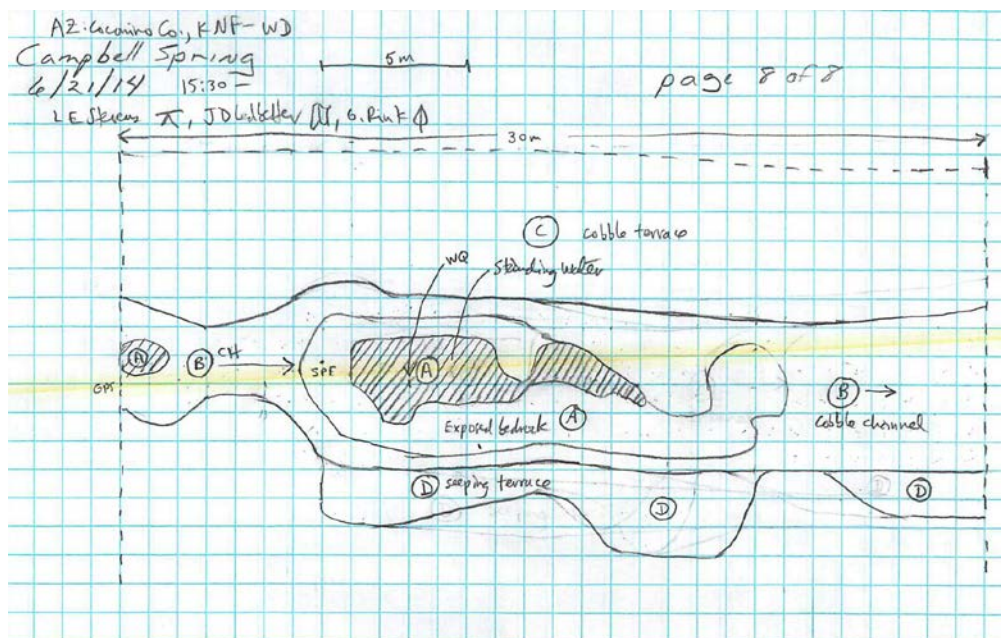 AZ: Coconino Co., KNF-WD
Campbell Spring
6/21/14 15:30 –
LE Stevens, JD Ledbetter, G. Rink
5m
page 8 of 8
30m
C cobble terrace
WQ
standing water
A
B
CH
SPF
A
GPS
B →
Exposed bedrock A
cobble channel
D seeping terrace
D
D
D